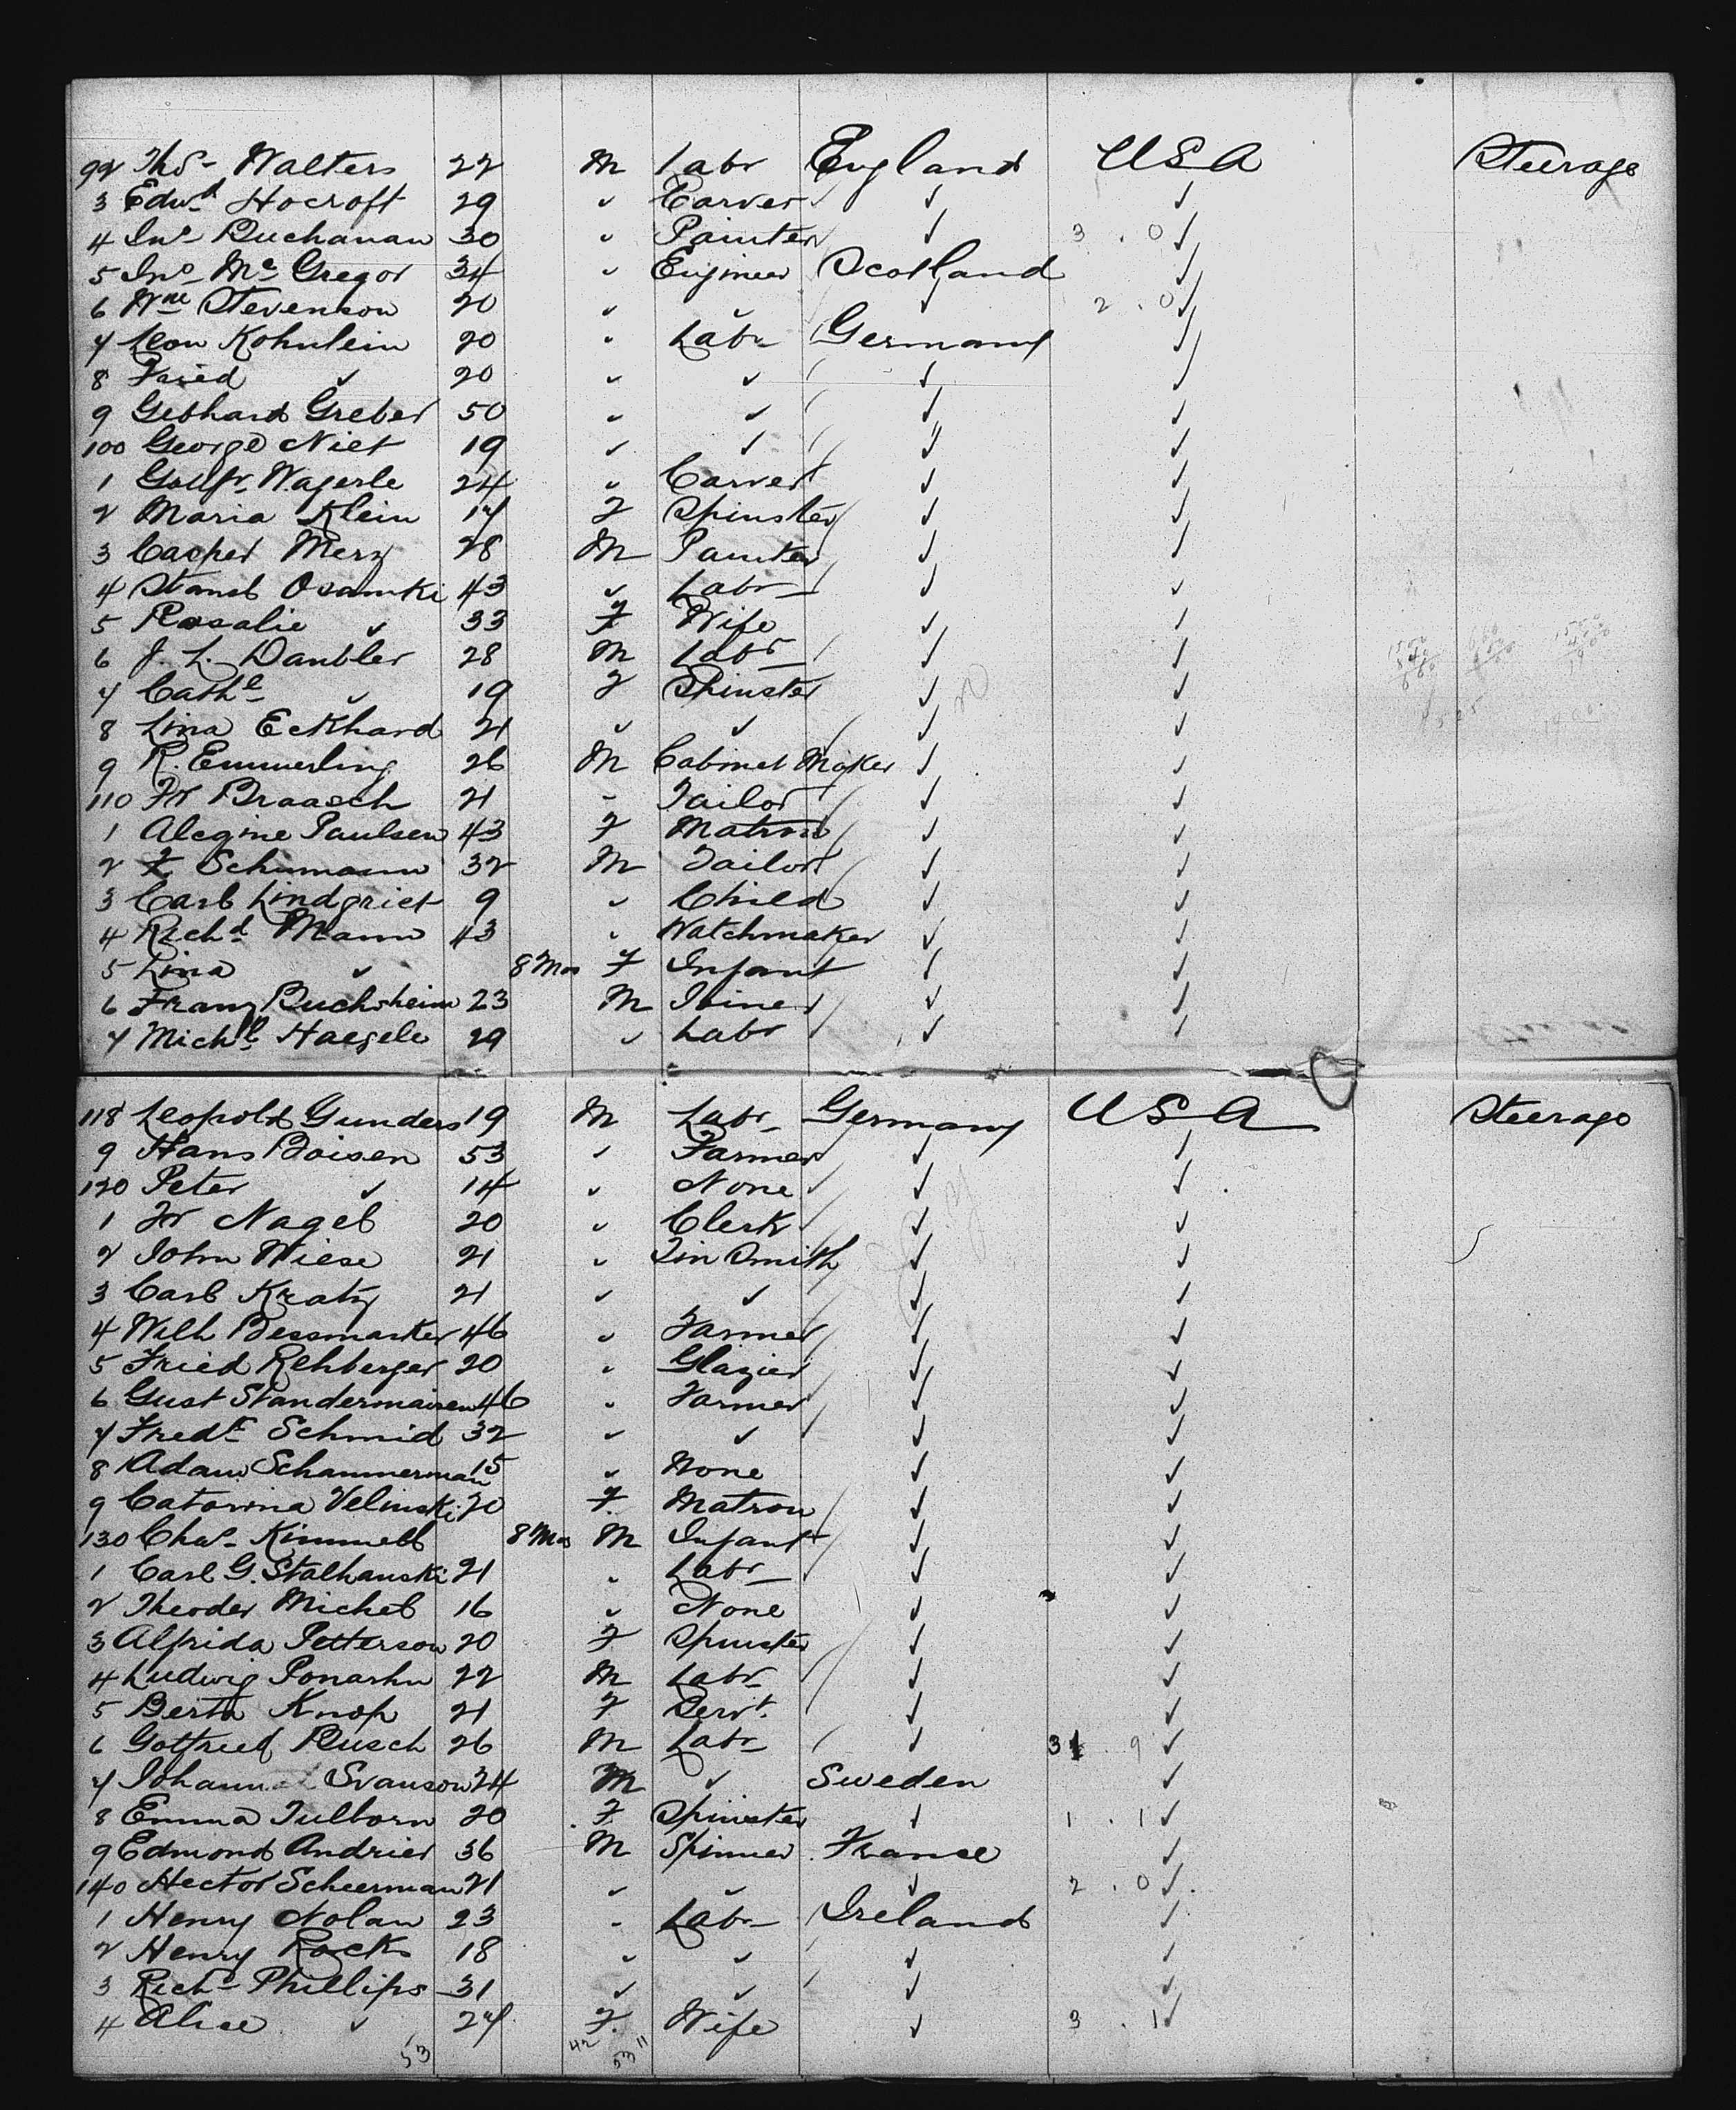 92 Thos Walters 22 M Labr England USA Steerage
3 Edwd Hocroft 29 ✓ Carver ✓ ✓
4 Jno Buchanan 30 ✓ Painter ✓ 3 . 0 ✓
5 Jno Mc Gregor 34 ✓ Engineer Scotland ✓
6 Wm Stevenson 20 ✓ ✓ ✓ 2 . 0 ✓
7 Leon Kohnlein 20 ✓ Labr Germany ✓
8 Fried ✓ 20 ✓ ✓ ✓ ✓
9 Gebhard Greber 50 ✓ ✓ ✓ ✓
100 George Niet 19 ✓ ✓ ✓ ✓
1 Wagerle 24 ✓ Carver ✓ ✓
2 Maria Klein 17 F Spinster ✓ ✓
3 Casper Merz 28 M Painter ✓ ✓
4 Stansl Osamki 43 ✓ Labr ✓ ✓
5 Rosalie ✓ 33 F Wife ✓ ✓
6 J. L. Daubler 28 M Labr ✓ ✓
7 Cathe ✓ 19 F Spinster ✓ ✓
8 Lina Eckhard 21 ✓ ✓ ✓ ✓
9 R. Emmerling 26 M Cabinet Maker ✓ ✓
110 Fr Braasch 21 - Tailor ✓ ✓
1 Alegine Paulsen 43 F Matron ✓ ✓
2 F Schumann 32 M Tailor ✓ ✓
3 Carl Lindgriet 9 ✓ Child ✓ ✓
4 Richd Mann 43 ✓ Watchmaker ✓ ✓
5 Lina ✓ 8 Mos F Infant ✓ ✓
6 Franz Buchsheim 23 M Joiner ✓ ✓
7 Michl Haegele 29 ✓ Labr ✓ ✓
118 Leopold Gunders 19 M Labr Germany USA Steerage
9 Hans Boisen 53 ✓ Farmer ✓ ✓
120 Peter ✓ 14 ✓ None ✓ ✓
1 Fr Nagel 20 ✓ Clerk ✓ ✓
2 John Wiese 21 ✓ Tin Smith ✓ ✓
3 Carl Kratz 21 ✓ ✓ ✓ ✓
4 Wilh Bessmarker 46 ✓ Farmer ✓ ✓
5 Fried Rehberger 20 ✓ Glazier ✓ ✓
6 Gust Standermairen 46 ✓ Farmer ✓ ✓
7 Fredk Schmid 32 ✓ ✓ ✓ ✓
8 Adam Schammerman 15 ✓ None ✓ ✓
9 Catarina Velinski 20 F. Matron ✓ ✓
130 Chas Kimmell 8 Mos M Infant ✓ ✓
1 Carl G. Stalhanski 21 ✓ Labr ✓ ✓
2 Theoder Michel 16 ✓ None ✓ ✓
3 Alfrida Petterson 20 F Spinster ✓ ✓
4 Ludwig Ponarhn 22 M Labr ✓ ✓
5 Berta Knop 21 F Servt. ✓ ✓
6 Gotfried Rusch 26 M Labr ✓ 31 . 9 ✓
7 Svanson 24 M ✓ Sweden ✓
8 Emma Tulborn 20 F Spinster ✓ 1 . 1 ✓
9 Edmond Andrier 36 M Spinner France ✓
140 Hector Scheerman 21 ✓ ✓ ✓ 2 . 0 ✓
1 Henry Nolan 23 - Labr Ireland ✓
2 Henry Rocks 18 ✓ ✓ ✓ ✓
3 Richd Phillips 31 ✓ ✓ ✓ ✓
4 Alice ✓ 27 F. Wife ✓ 3 . 1 ✓
53 42 53 11